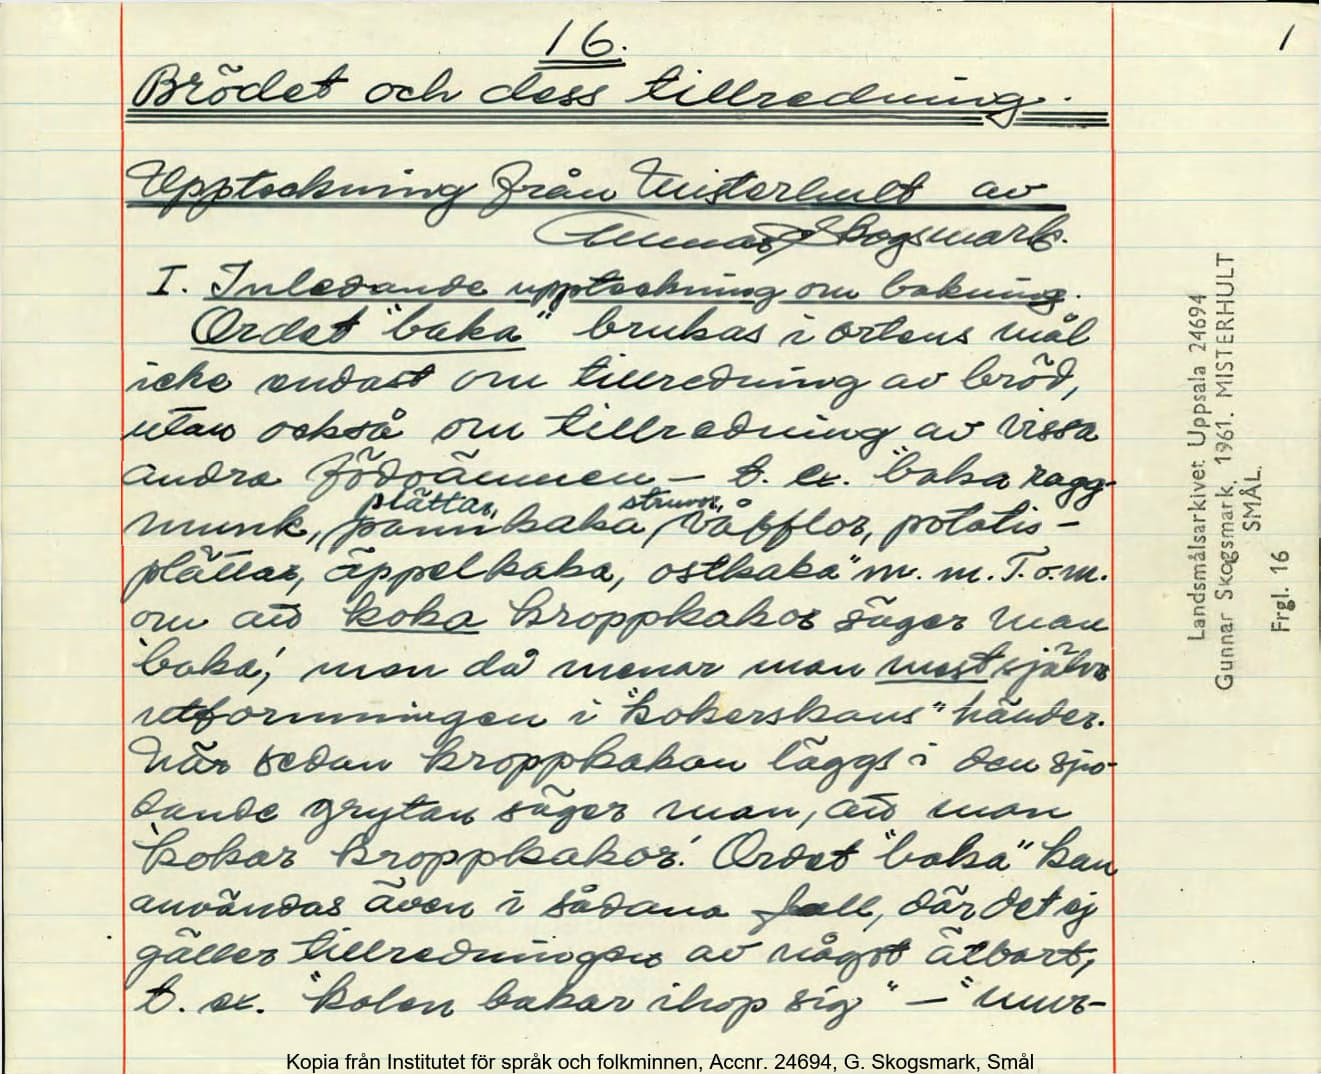 16.
1
Brödet och dess tillredning.
Uppteckning från Misterhult av
Gunnar Skogsmark.
I. Inledande uppteckning om bakning.
Ordet "baka" brukas i ortens mål
icke endast om tillredning av bröd,
utan också om tillredning av vissa
andra födoämnen – t. ex. "baka ragg-
plättar, struvor,
munk, pannkaka, våfflor, potatis-
plättar, äppelkaka, ostkaka" m. m. T.o.m.
om att koka kroppkakor säger man
'baka', men då menar man mest själva
utformningen i "kokerskans" händer.
När sedan kroppkakan läggs i den sju-
dande grytan säger man, att man
'kokar kroppkakor'. Ordet "baka" kan
användas även i sådana fall, där det ej
gäller tillredningen av något ätbart,
t. ex. "kolen bakar ihop sig" – "mur-
Landsmålsarkivet Uppsala 24694
Gunnar Skogsmark, 1961. MISTERHULT
SMÅL.
Frgl. 16
Kopia från Institutet för språk och folkminnen, Accnr. 24694, G. Skogsmark, Smål